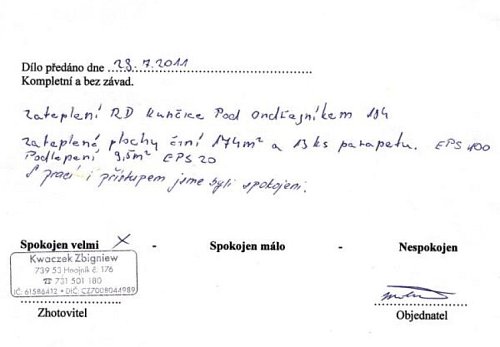 Dílo předáno dne 28.7.2011
Kompletní a bez závad.
Zateplení RD Kunčice Pod Ondřejníkem 184
Zateplené plochy činí 174m² a 13 ks parapetu. EPS 100
Podlepení 9,5m² EPS 20
S prací i přístupem jsme byli spokojeni.
Spokojen velmi X - Spokojen málo - Nespokojen
Kwaczek Zbigniew
739 53 Hnojník č. 176
☎ 731 501 180
IČ: 61586412 • DIČ: CZ7008044989
Zhotovitel
Objednatel